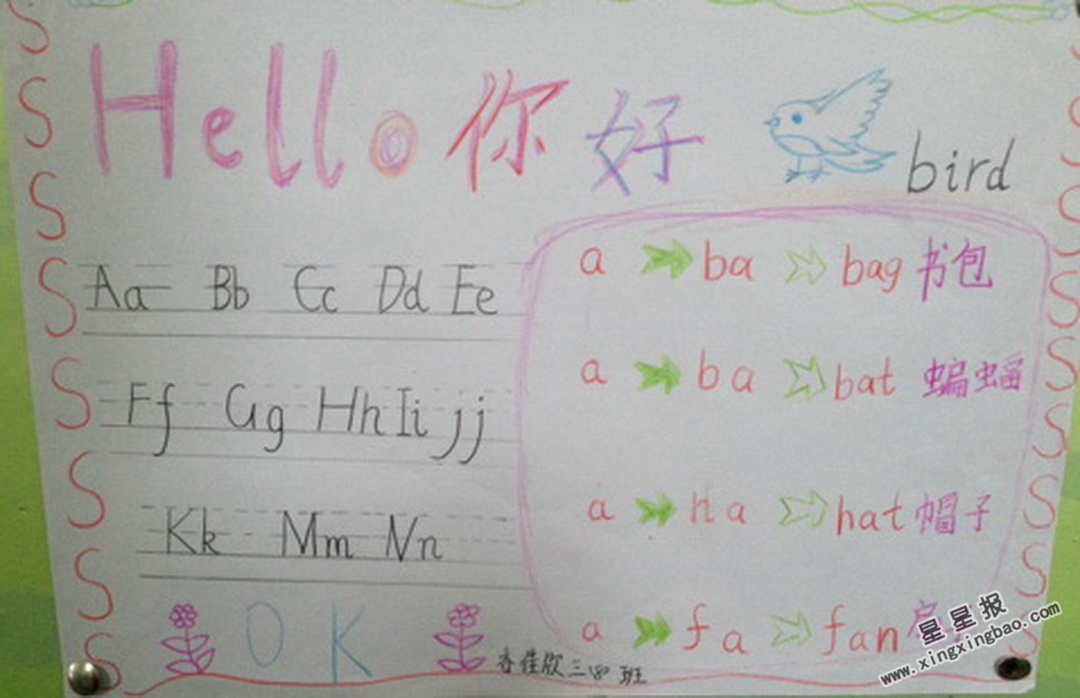 Hello 你好
bird
Aa Bb Cc Dd Ee
Ff Gg Hh Ii Jj
Kk Mm Nn
OK
a ba bag 书包
a ba bat 蝙蝠
a ha hat 帽子
a fa fan
三 班
星星报
www.xingxingbao.com